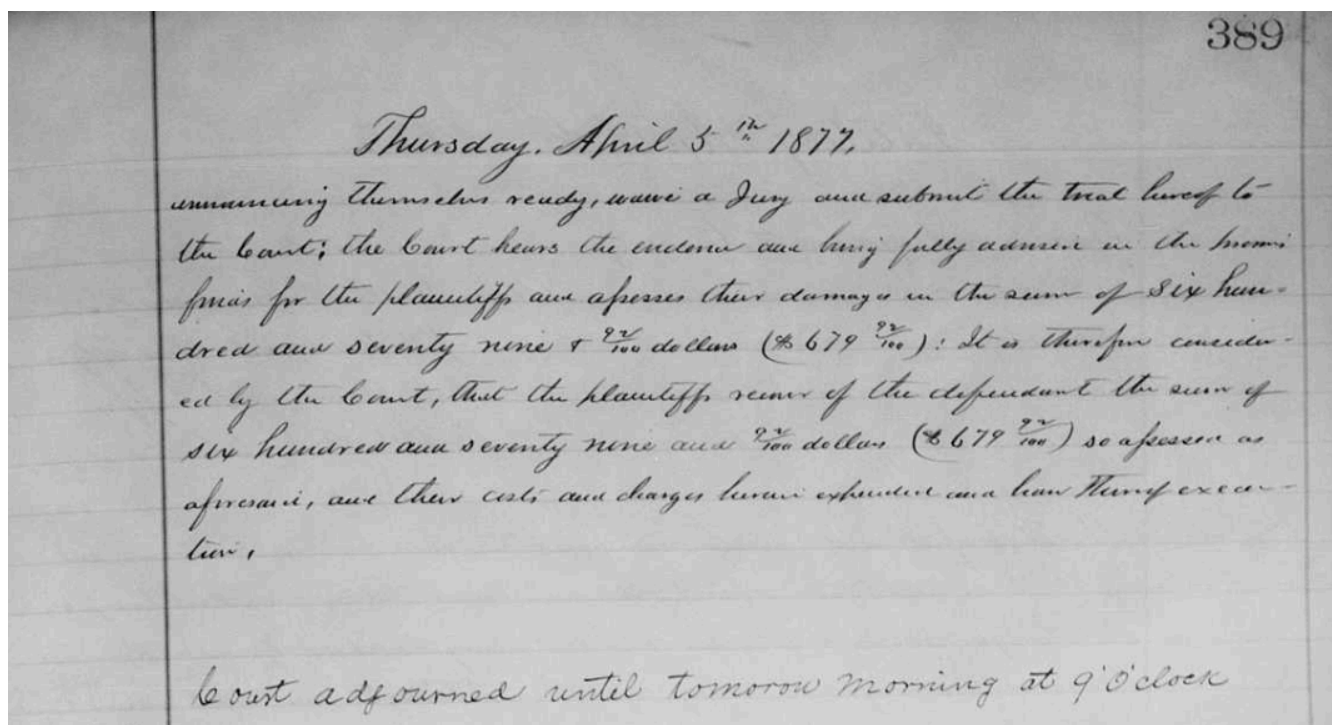 389
Thursday. April 5th 1877.
announcing themselves ready, waive a Jury and submit the trial hereof to
the Court; the Court hears the evidence and being fully advised in the premis
finds for the plaintiffs and assesses their damages in the sum of Six hun-
dred and seventy nine & 92/100 dollars ($679 92/100): It is therefore consider-
ed by the Court, that the plaintiffs recover of the defendant the sum of
six hundred and seventy nine and 92/100 dollars ($679 92/100) so assessed as
aforesaid, and their costs and charges herein expended and have thereof execu-
tion.
Court adjourned until tomorow morning at 9 O'clock